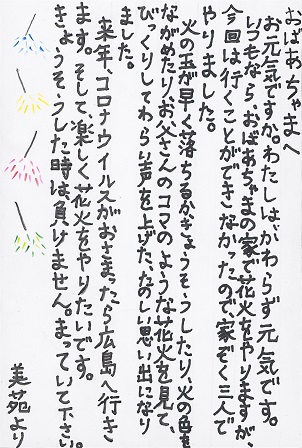 おばあちゃまへ
お元気ですか。わたしは、かわらず元気です。
いつもなら、おばあちゃまの家で花火をやりますが、
今回は行くことができなかったので、家ぞく三人で
やりました。
火の玉が早く落ちるかきょうそうしたり、火の色を
ながめたり、お父さんのコマのような花火を見て、
びっくりしてわらい声を上げた、たのしい思い出になり
ました。
来年、コロナウイルスがおさまったら広島へ行き
ます。そして、楽しく花火をやりたいです。
きょうそうした時は、負けません。まっていて下さい。
美苑より